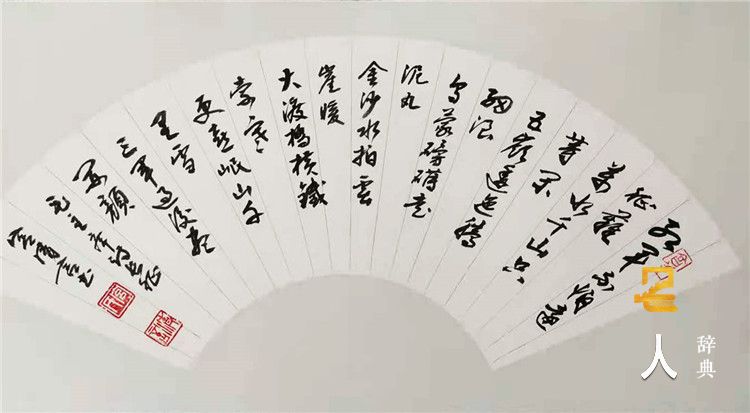 红军不怕遠
征難
萬水千山只
等闲
五嶺逶迤腾
细浪
乌蒙磅礴走
泥丸
金沙水拍雲
崖暖
大渡橋横鐵
索寒
更喜岷山千
里雪
三军过後尽
开颜
毛主席詩长征
人
辞典